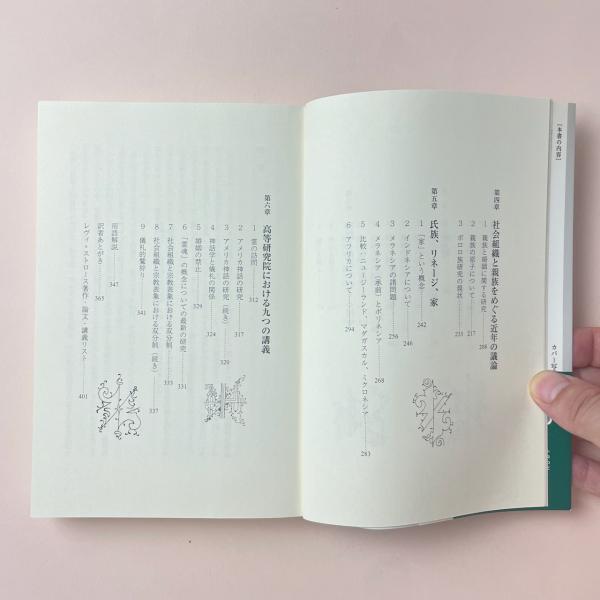 第四章 社会組織と親族をめぐる近年の議論
1 親族と婚姻に関する研究 208
2 親族の原子について 217
3 ボロロ族研究の現状 231
第五章 氏族、リネージ、家
1 「家」という概念 242
2 インドネシアについて 246
3 メラネシアの諸問題 256
4 メラネシア(承前)とポリネシア 268
5 比較/ニュージーランド、マダガスカル、ミクロネシア 283
6 アフリカについて 294
第六章 高等研究院における九つの講義
1 霊の訪問 312
2 アメリカ神話の研究 317
3 アメリカ神話の研究(続き) 320
4 神話学と儀礼の関係 324
5 婚姻の禁止 329
6 「霊魂」の概念についての最新の研究 331
7 社会組織と宗教表象における双分制 333
8 社会組織と宗教表象における双分制(続き) 337
9 儀礼的鷲狩り 341
用語解説 347
訳者あとがき 365
レヴィ=ストロース著作・論文・講義リスト 401
[本書の内容]
カバー写